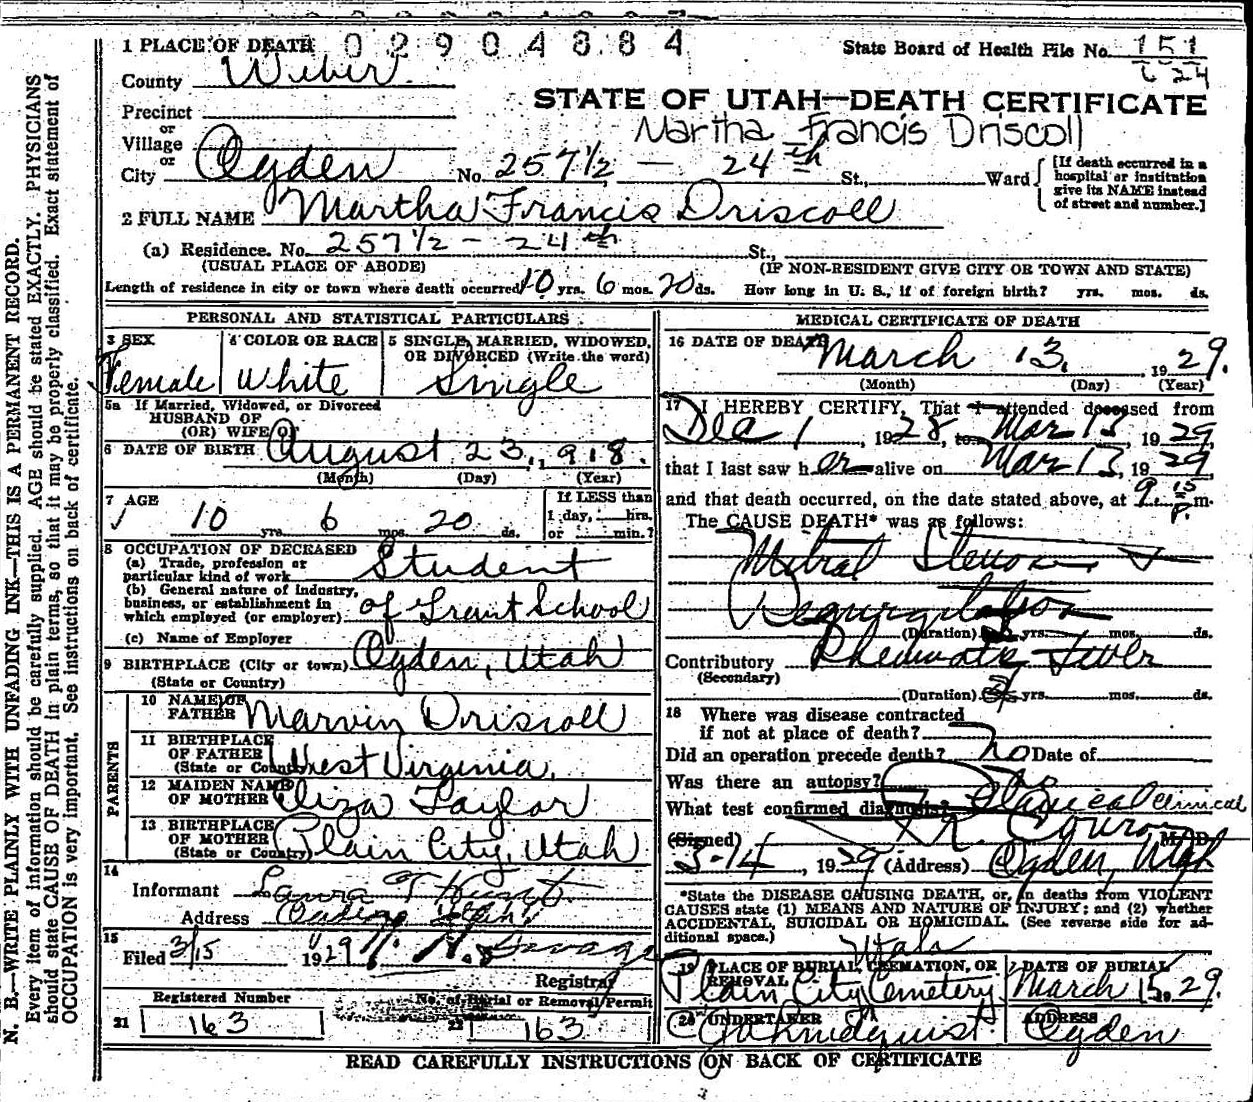 1 PLACE OF DEATH 02904884
State Board of Health File No. 151
624
County Weber
STATE OF UTAH—DEATH CERTIFICATE
Precinct
Martha Francis Driscoll
or
Village
or
City Ogden No. 257 1/2 — 24th St., Ward
[If death occurred in a hospital or institution give its NAME instead of street and number.]
2 FULL NAME Martha Francis Driscoll
(a) Residence. No. 257 1/2 - 24th St.,
(USUAL PLACE OF ABODE) (IF NON-RESIDENT GIVE CITY OR TOWN AND STATE)
Length of residence in city or town where death occurred 10 yrs. 6 mos. 20 ds. How long in U. S., if of foreign birth? yrs. mos. ds.
PERSONAL AND STATISTICAL PARTICULARS
3 SEX 4 COLOR OR RACE 5 SINGLE, MARRIED, WIDOWED,
OR DIVORCED (Write the word)
Female White Single
5a If Married, Widowed, or Divorced
HUSBAND OF
(OR) WIFE OF
6 DATE OF BIRTH August 23, 1918.
(Month) (Day) (Year)
7 AGE If LESS than
10 yrs. 6 mos. 20 ds. 1 day, hrs.
or min.?
8 OCCUPATION OF DECEASED
(a) Trade, profession or
particular kind of work Student
(b) General nature of industry,
business, or establishment in
which employed (or employer) of Grant School
(c) Name of Employer
9 BIRTHPLACE (City or town) Ogden, Utah
(State or Country)
PARENTS
10 NAME OF
FATHER Marvin Driscoll
11 BIRTHPLACE
OF FATHER West Virginia.
(State or Country)
12 MAIDEN NAME
OF MOTHER Eliza Taylor
13 BIRTHPLACE
OF MOTHER Plain City, Utah
(State or Country)
14
Informant Laura T
Address Ogden Utah
15
Filed 3/15 1929 Savage
Registrar
Registered Number No. of Burial or Removal Permit
21 163 22 163
MEDICAL CERTIFICATE OF DEATH
16 DATE OF DEATH March 13, 1929.
(Month) (Day) (Year)
17 I HEREBY CERTIFY, That I attended deceased from
Dec 1, 1928, to Mar 13, 1929,
that I last saw her alive on Mar 13, 1929
and that death occurred, on the date stated above, at 9:15 P. m.
The CAUSE DEATH* was as follows:
Mitral Stenosis &
Regurgitation
(Duration) yrs. mos. ds.
Contributory Rheumatic Fever
(Secondary)
(Duration) yrs. mos. ds.
18 Where was disease contracted
if not at place of death?
Did an operation precede death? no Date of
Was there an autopsy? no
What test confirmed diagnosis? Clinical Clinical
(Signed) M. D.
3-14, 1929 (Address) Ogden, Utah
*State the DISEASE CAUSING DEATH, or, in deaths from VIOLENT
CAUSES state (1) MEANS AND NATURE OF INJURY; and (2) whether
ACCIDENTAL, SUICIDAL OR HOMICIDAL. (See reverse side for additional space.)
Utah
19 PLACE OF BURIAL, CREMATION, OR REMOVAL DATE OF BURIAL
Plain City Cemetery. March 15, 1929.
20 UNDERTAKER ADDRESS
Ogden
READ CAREFULLY INSTRUCTIONS ON BACK OF CERTIFICATE
N. B.—WRITE PLAINLY WITH UNFADING INK—THIS IS A PERMANENT RECORD.
Every item of information should be carefully supplied. AGE should be stated EXACTLY. PHYSICIANS
should state CAUSE OF DEATH in plain terms, so that it may be properly classified. Exact statement of
OCCUPATION is very important. See instructions on back of certificate.